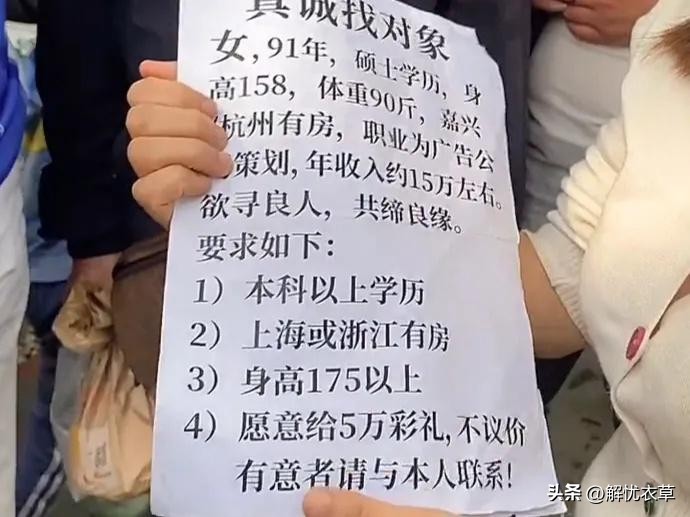 真诚找对象
女，91年，硕士学历，身
高158，体重90斤，嘉兴
杭州有房，职业为广告公
策划，年收入约15万左右。
欲寻良人，共缔良缘。
要求如下：
1）本科以上学历
2）上海或浙江有房
3）身高175以上
4）愿意给5万彩礼，不议价
有意者请与本人联系！
头条 @解忧衣草